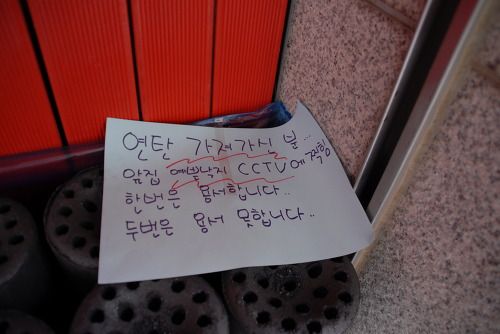 연탄 가져가신 분...
앞집 예쁜낙지 CCTV에 찍힘
한번은 용서합니다..
두번은 용서 못합니다..